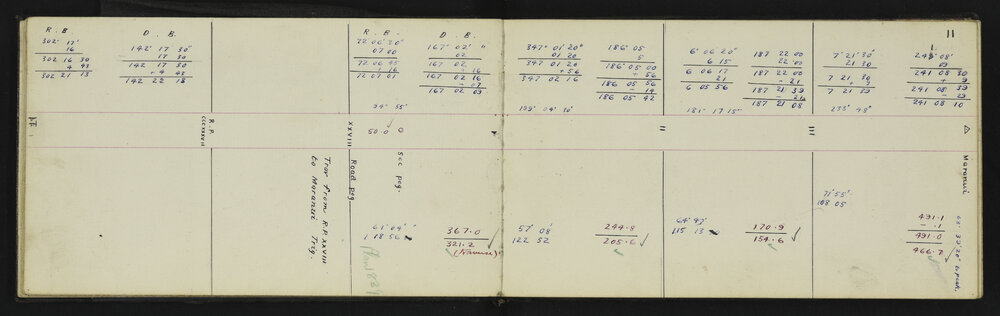 R. B.
302° 17'
16
302 16 30
4 43
302 21 13
D. B.
142° 17' 30"
17 30
142 17 30
+ 4 48
142 22 18
R. B.
72 06' 30"
07 00
72 06 45
+ 16
72 07 01
34° 55'
D. B.
167° 02' "
02
167 02
+ 16
167 02 16
- 07
167 02 09
347° 01' 20"
01 20
347 01 20
+ 56
347 02 16
159° 04' 30"
186° 05
5
186° 05 00
+ 56
186 05 56
- 14
186 05 42
6° 06 20"
6 15
6 06 17
21
6 05 56
181° 17' 15"
187 22 00
22 00
187 22 00
- 21
187 21 39
187 21 08
7° 21' 30"
21 30
7 21 30
7 21 29
233° 48'
11
241° 08'
09
241 08 30
+ 9
241 08 39
- 29
241 08 10
R. P.
XXVIII
50.0
II
III
Maranui
Trav from R.P. XXVIII
to Maranui Trig.
Road peg
Scc peg.
61° 04'
118 56
367.0
321.2
(Traverse)
57° 08'
122 52
244.8
205.6
64° 47'
115 13
170.9
154.6
71° 55'
108 05
491.1
- .1
491.0
466.7